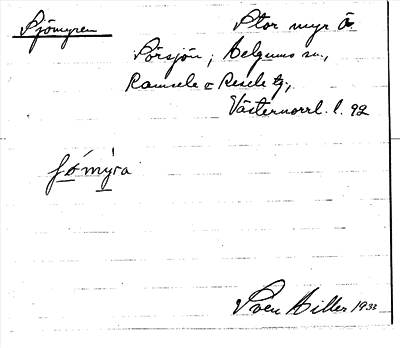 Sjömyren
Stor myr Ö
Sörsjön, Helgums sn.,
Ramsele o Resele tg.,
Västernorrl. l. 92
sjömýra
Sven Hiller 1933